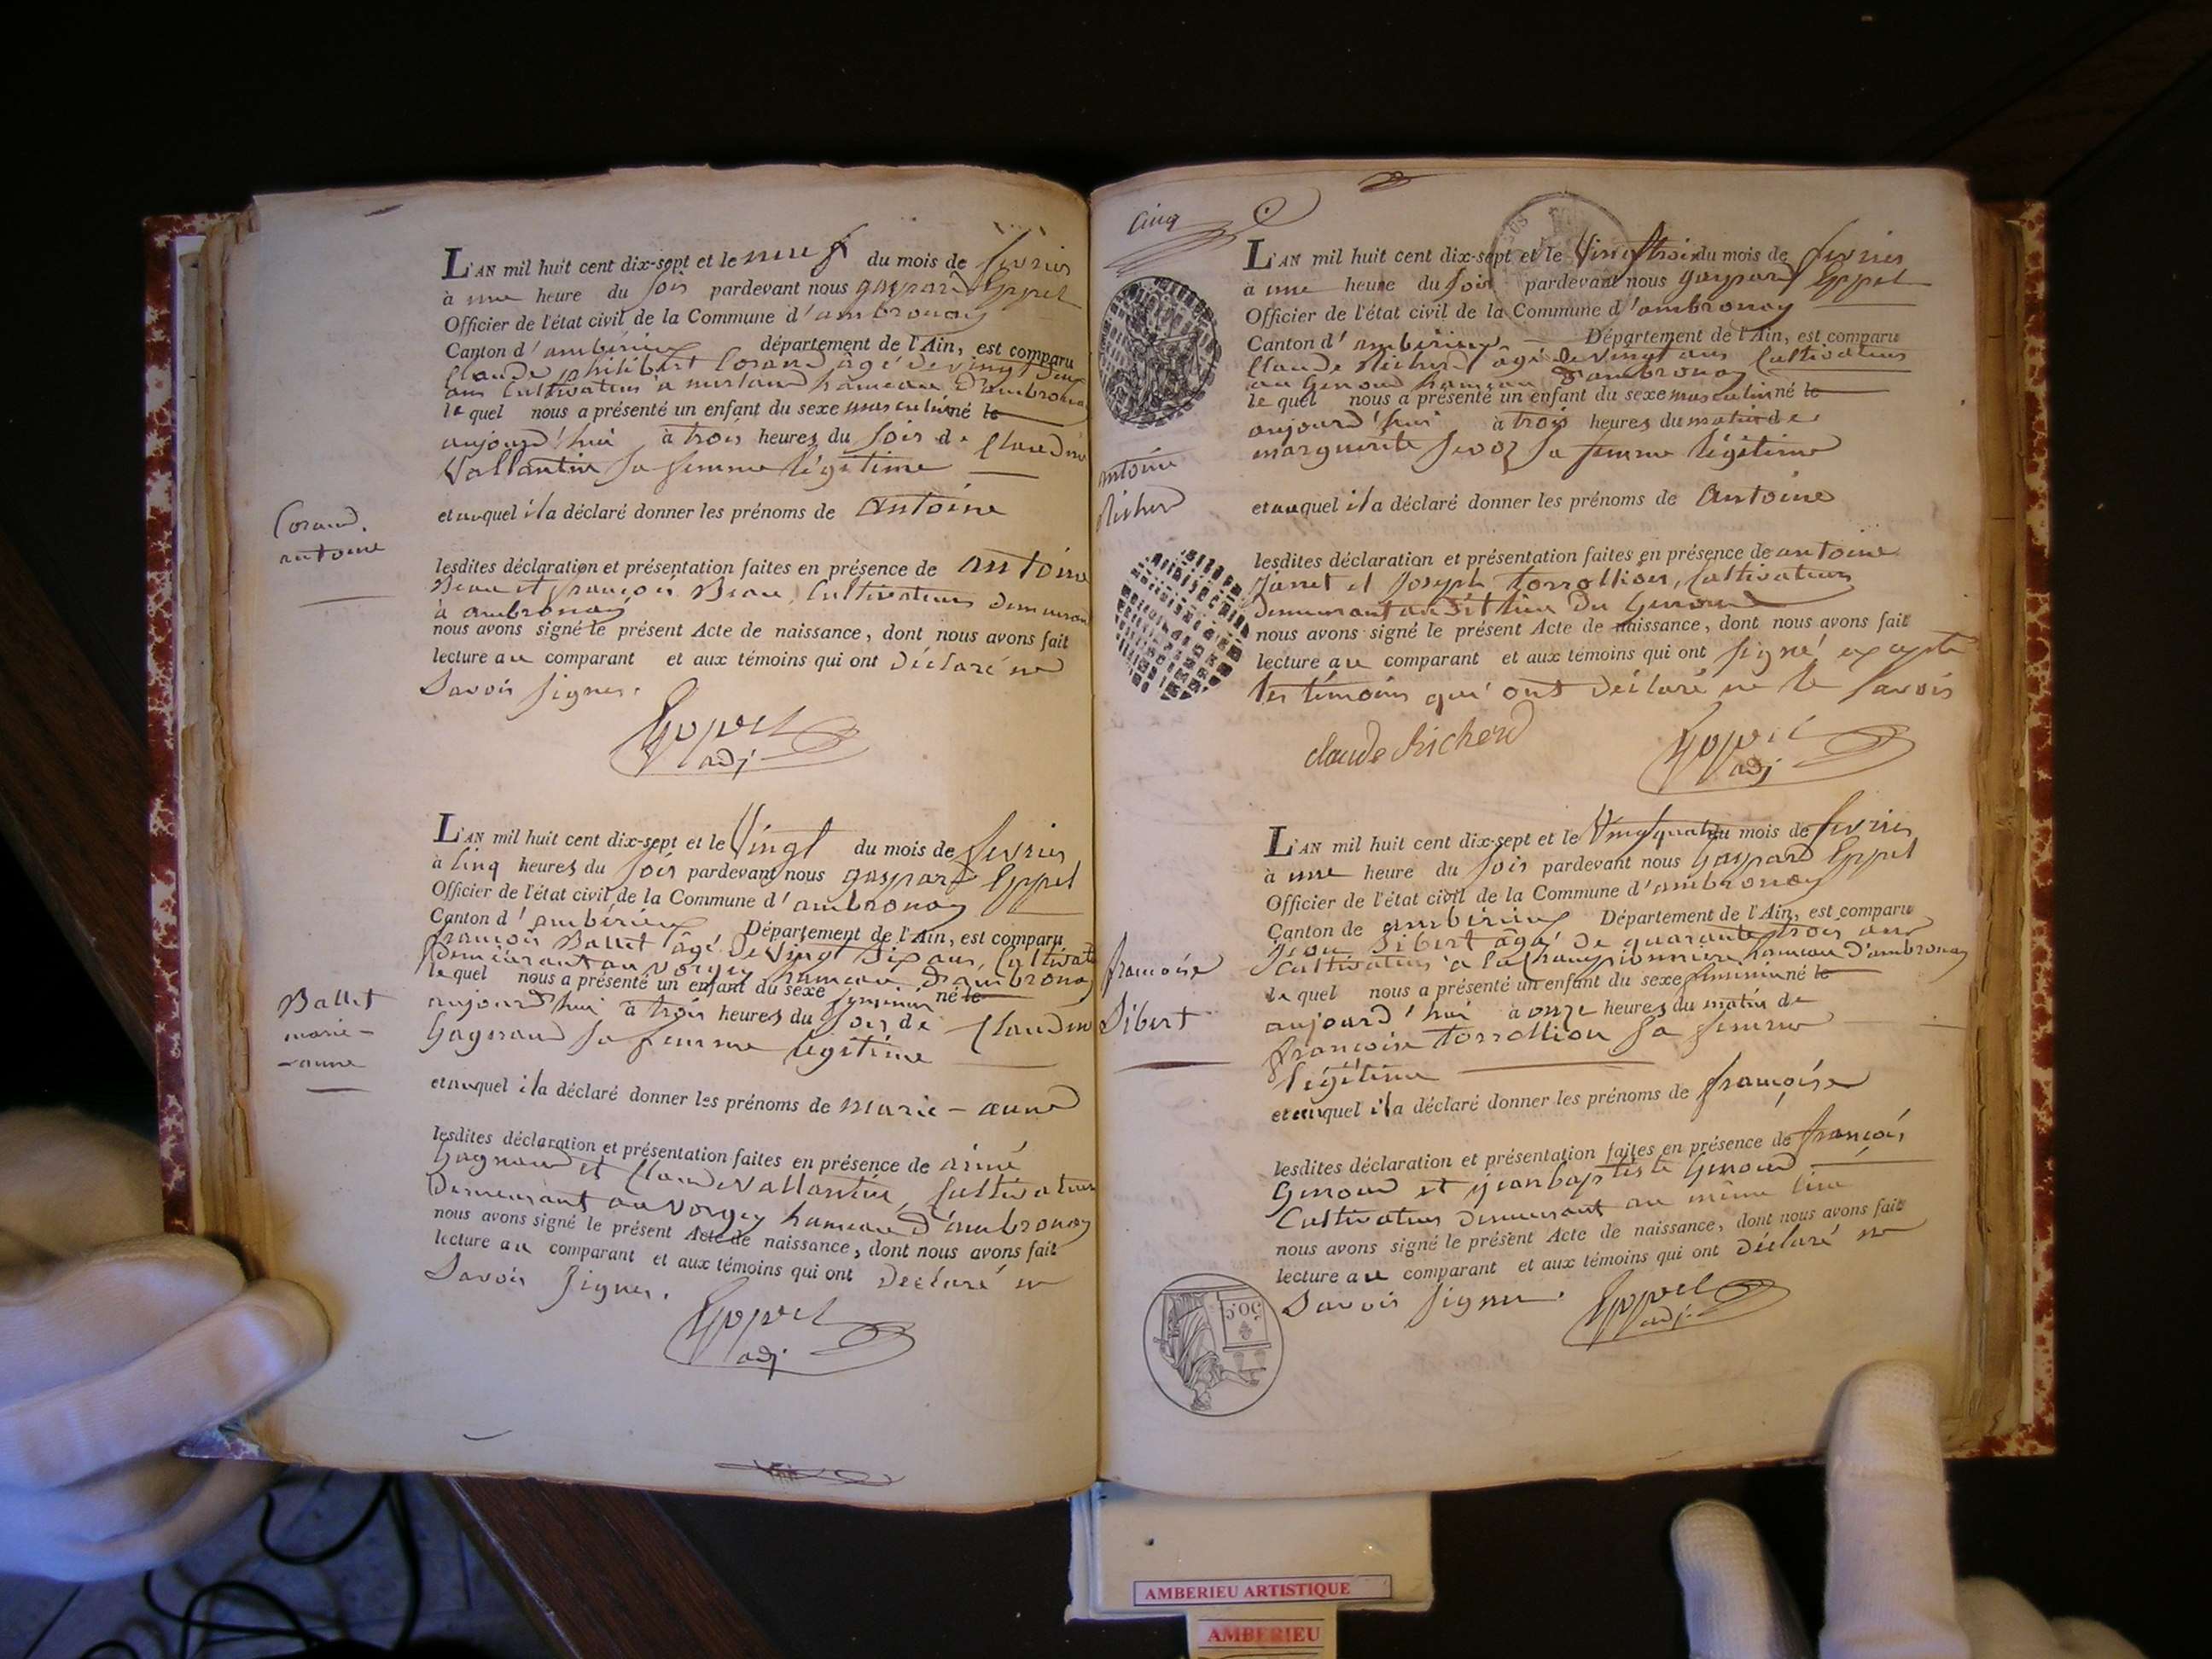 L'AN mil huit cent dix-sept et le neuf du mois de fevrier
à une heure du soir pardevant nous gaspard Eppel
Officier de l'état civil de la Commune d'ambronay
Canton d'amberieux département de l'Ain, est comparu
Claude philibert Corand âgé de vingt deux
ans Cultivateur a merland hameau d'ambronay
lequel nous a présenté un enfant du sexe masculin né le
aujourd'hui à trois heures du soir de Claudine
Vallantin sa femme légitime
Corand.
antoine
et auquel il a déclaré donner les prénoms de Antoine
lesdites déclaration et présentation faites en présence de antoine
Beau et françois Beau, Cultivateurs demeurant
à ambronay
nous avons signé le présent Acte de naissance, dont nous avons fait
lecture au comparant et aux témoins qui ont déclaré ne
Savoir signer.
Eppel
adj
L'AN mil huit cent dix-sept et le Vingt du mois de fevrier
à cinq heures du soir pardevant nous gaspard Eppel
Officier de l'état civil de la Commune d'ambronay
Canton d'amberieux Département de l'Ain, est comparu
françois Ballet âgé de vingt six ans, Cultivat
demeurant au vorgey hameau d'ambronay
lequel nous a présenté un enfant du sexe feminin né le
aujourd'hui à trois heures du soir de Claudine
Gagneau sa femme legitime
Ballet
marie-
-anne
et auquel il a déclaré donner les prénoms de marie-anne
lesdites déclaration et présentation faites en présence de aimé
Gagneau et Claude Vallantin, Cultivateurs
Demeurant au vorgey hameau d'ambronay
nous avons signé le présent Acte de naissance, dont nous avons fait
lecture au comparant et aux témoins qui ont déclaré ne
Savoir signer.
Eppel
adj
Cinq
L'AN mil huit cent dix-sept et le Vingt trois du mois de fevrier
à une heure du soir pardevant nous gaspard Eppel
Officier de l'état civil de la Commune d'ambronay
Canton d'amberieux Département de l'Ain, est comparu
Claude Richerd âgé de vingt ans Cultivateur
au Genoud hameau d'ambronay
lequel nous a présenté un enfant du sexe masculin né le
aujourd'hui à trois heures du matin de
marguerite sevoz sa femme légitime
antoine
Richerd
et auquel il a déclaré donner les prénoms de Antoine
lesdites déclaration et présentation faites en présence de antoine
Janet et Joseph torrollion, Cultivateurs
demeurant au dit lieu du Genoud
nous avons signé le présent Acte de naissance, dont nous avons fait
lecture au comparant et aux témoins qui ont signé excepté
les témoins qui ont déclaré ne le savoir
claude Richerd
Eppel
adj
L'AN mil huit cent dix-sept et le Vingt quatre du mois de fevrier
à une heure du soir pardevant nous Gaspard Eppel
Officier de l'état civil de la Commune d'ambronay
Canton de amberieux Département de l'Ain, est comparu
jean Sibert âgé de quarante trois ans
Cultivateur a la Championniere hameau d'ambronay
lequel nous a présenté un enfant du sexe feminin né le
aujourd'hui à onze heures du matin de
françoise torrollion sa femme
légitime
françoise
Sibert
et auquel il a déclaré donner les prénoms de françoise
lesdites déclaration et présentation faites en présence de françois
Genoud et jean baptiste Genoud
Cultivateurs demeurant au même lieu
nous avons signé le présent Acte de naissance, dont nous avons fait
lecture au comparant et aux témoins qui ont déclaré ne
Savoir signer.
Eppel
adj.
50.c
AMBERIEU ARTISTIQUE
AMBERIEU